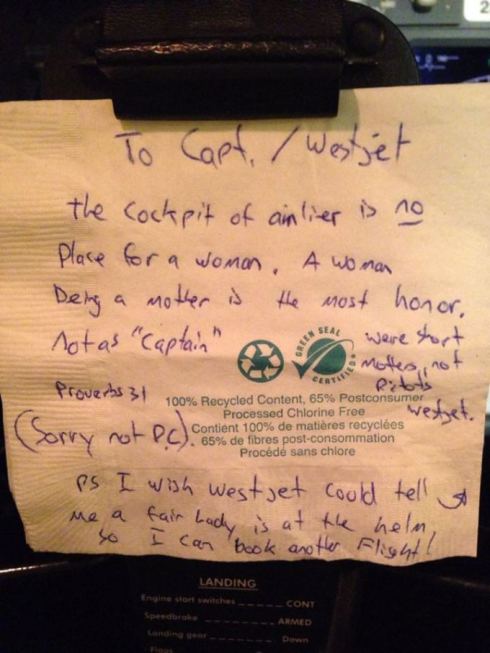 To Capt. / Westjet
the cockpit of airliner is no
Place for a woman. A woman
being a mother is the most honor.
Not as "Captain"
GREEN SEAL
CERTIFIED
were short
mothers, not
Pilots
Westjet.
Proverbs 31
100% Recycled Content, 65% Postconsumer
Processed Chlorine Free
(Sorry not P.C).
Contient 100% de matières recyclées
65% de fibres post-consommation
Procédé sans chlore
PS I wish Westjet could tell
me a fair lady is at the helm
So I can book another Flight!
LANDING
Engine start switches _ _ _ _ _ _ CONT
Speedbrake _ _ _ _ _ _ ARMED
Landing gear _ _ _ _ _ _ Down
Flaps
2